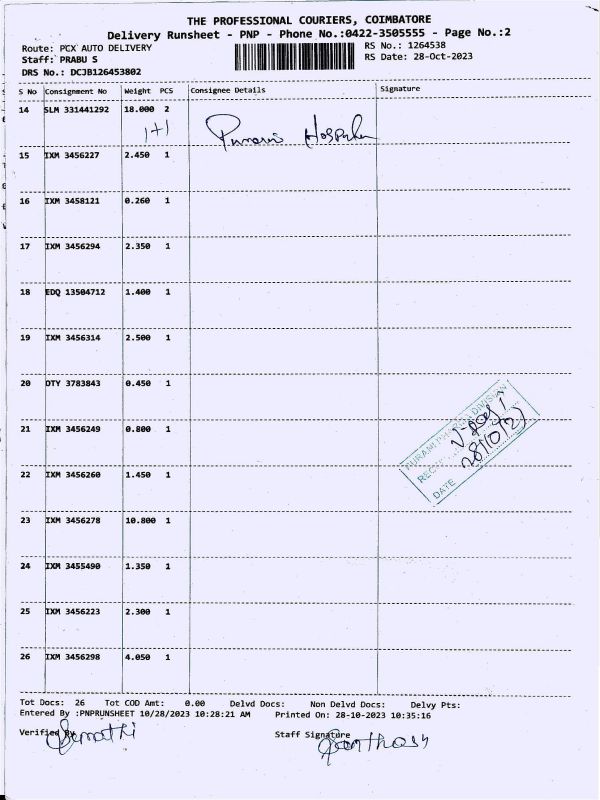 THE PROFESSIONAL COURIERS, COIMBATORE
Delivery Runsheet - PNP - Phone No.:0422-3505555 - Page No.:2
Route: PCX AUTO DELIVERY
RS No.: 1264538
Staff: PRABU S
RS Date: 28-Oct-2023
DRS No.: DCJB126453802
S No Consignment No Weight PCS Consignee Details Signature
14 SLM 331441292 18.000 2
1+1
15 IXM 3456227 2.450 1
16 IXM 3458121 0.260 1
17 IXM 3456294 2.350 1
18 EDQ 13504712 1.400 1
19 IXM 3456314 2.500 1
20 OTY 3783843 0.450 1
21 IXM 3456249 0.800 1
22 IXM 3456260 1.450 1
23 IXM 3456278 10.800 1
24 IXM 3455490 1.350 1
25 IXM 3456223 2.300 1
26 IXM 3456298 4.050 1
DIVISION
DATE
Tot Docs: 26 Tot COD Amt: 0.00 Delvd Docs: Non Delvd Docs: Delvy Pts:
Entered By :PNPRUNSHEET 10/28/2023 10:28:21 AM Printed On: 28-10-2023 10:35:16
Verified By
Staff Signature